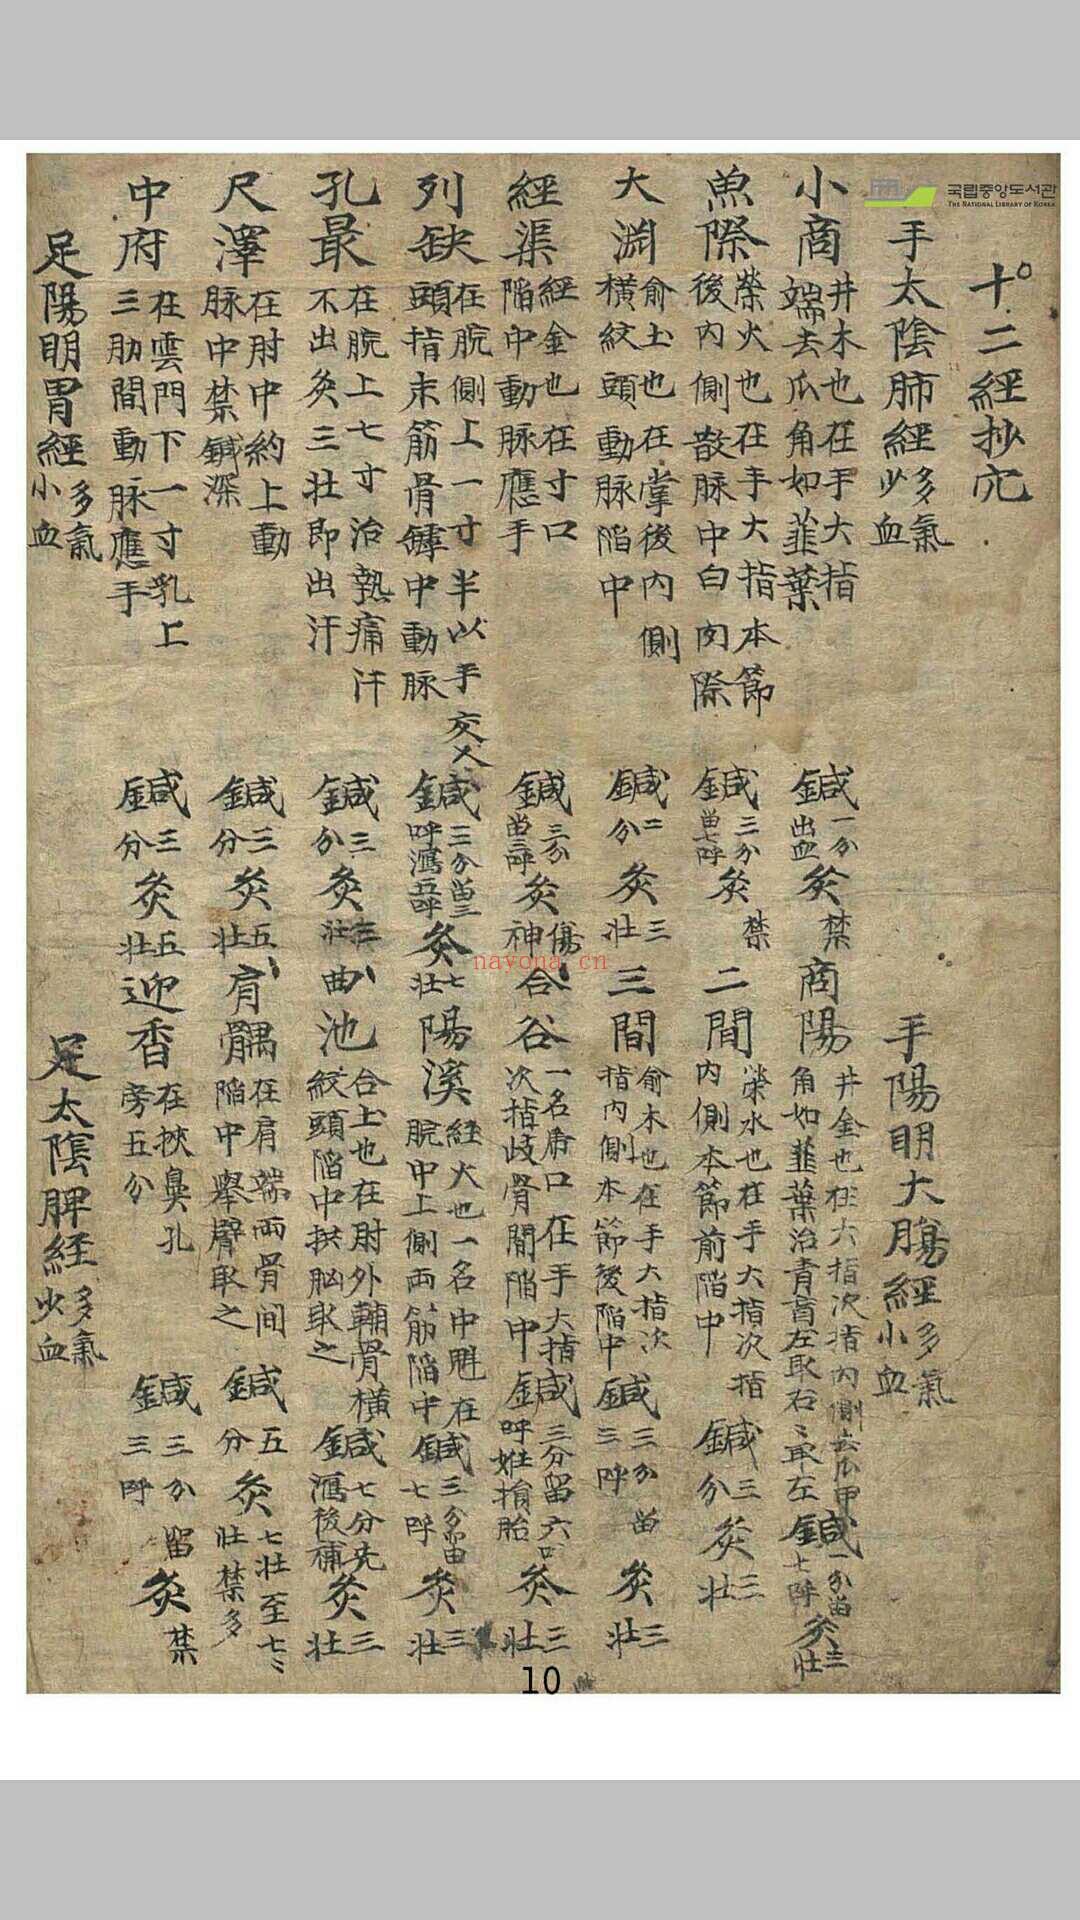 국립중앙도서관
THE NATIONAL LIBRARY OF KOREA
十二經抄穴
手太陰肺經 多氣少血
手陽明大膓經 多氣小血
小商 井木也在手大指端去爪角如韮葉 鍼 一分出血 灸 禁
商陽 井金也在大指次指內側去爪甲角如韮葉治青盲左取右〻取左 鍼 一分留七呼 灸 三壯
魚際 荣火也在手大指本節後內側散脉中白肉際 鍼 三分留七呼 灸 禁
二間 荣水也在手大指次指內側本節前陷中 鍼 三分 灸 三壯
大渊 俞土也在掌後內側橫紋頭動脉陷中 鍼 二分 灸 三壯
三間 俞木也在手大指次指內側本節後陷中 鍼 三分留三呼 灸 三壯
經渠 經金也在寸口陷中動脉應手 鍼 三分留三呼 灸 傷神
合谷 一名虎口在手大指次指歧骨間陷中 鍼 三分留六呼姙損胎 灸 三壯
列缺 在腕側上一寸半以手交叉頭指末筋骨罅中動脉 鍼 三分留三呼瀉五呼 灸 七壯
陽溪 經火也一名中魁在腕中上側兩筋陷中 鍼 三分留七呼 灸 三壯
孔最 在腕上七寸治熱痛汗不出灸三壯即出汗 鍼 三分 灸 三壯
曲池 合土也在肘外輔骨橫紋頭陷中拱胸取之 鍼 七分先瀉後補 灸 三壯
尺澤 在肘中約上動脉中禁鍼深 鍼 三分 灸 五壯
肩髃 在肩端兩骨间陷中舉臂取之 鍼 五分 灸 七壯至七〻壯禁多
中府 在雲門下一寸乳上三肋間動脉應手 鍼 三分 灸 五壯
迎香 在挾鼻孔旁五分 鍼 三分留三呼 灸 禁
足陽明胃經 多氣小血
足太陰脾經 多氣少血
nayona.cn
10